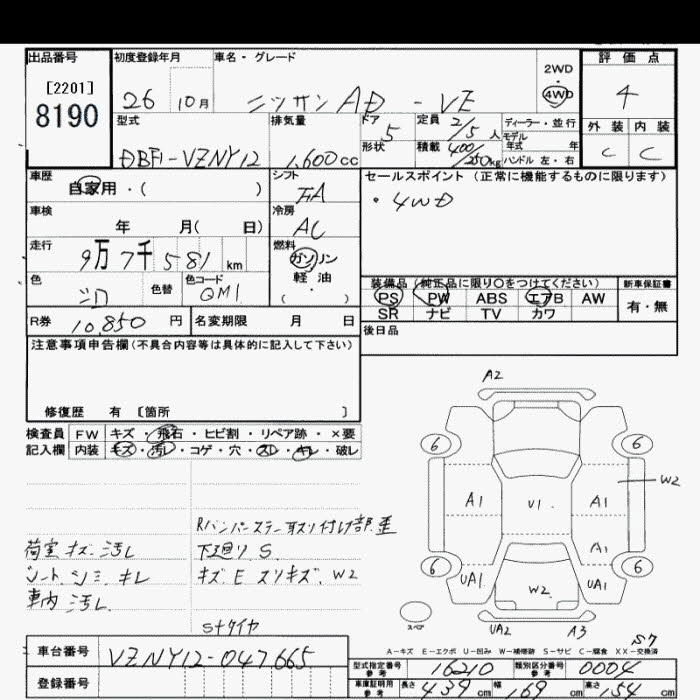 出品番号
[2201]
8190
初度登録年月
26 10月
車名・グレード
ニッサン AD - VE
2WD
4WD
評価点
4
外装 内装
C C
型式
DBF1-VZNY12
排気量
1,600cc
ドア
5
形状
定員 2/5人
積載 400/250kg
ディーラー・並行
モデル
年式 年
ハンドル 左・右
車歴
自家用・( )
シフト
FA
車検
年 月( 日)
冷房
AC
走行
9万7千581km
燃料
ガソリン
軽油
( ・ )
色
色替
色コード
QM1
R券 10,850円
名変期限 月 日
セールスポイント(正常に機能するものに限ります)
・4WD
装備品(純正品に限り○をつけてください)
PS PW ABS エアB AW
SR ナビ TV カワ
新車保証書
有・無
後日品
注意事項申告欄(不具合内容等は具体的に記入して下さい)
修復歴 有 [箇所 ]
検査員
記入欄
FW キズ・飛石・ヒビ割・リペア跡・×要
内装 キズ・汚レ・コゲ・穴・スレ・キレ・破レ
荷室 キズ 汚レ
シート シミ キレ
車内 汚レ
下廻り S
キズ E スリキズ W2
Sナタイヤ
A2
6 6
W2
A1 U1 A1
A1
6 6
UA1 W2 UA1
スペア
UA2 A3
S7
A-キズ E-エクボ U-凹み W-補修跡 S-サビ C-腐食 XX-交換済
車台番号 VZNY12-047665
登録番号
型式指定番号
参考
16210
類別区分番号
参考
0004
車庫証明用
参考
長さ 439cm 幅 169cm 高さ 154cm